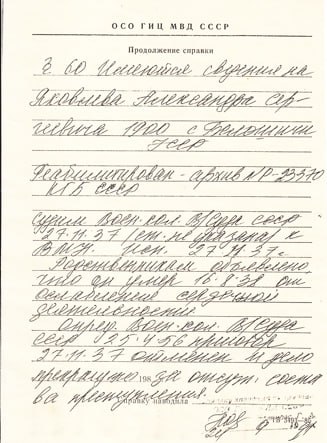 ОСО ГИЦ МВД СССР
Продолжение справки
З 60 Имеются сведения на
Яковлева Александра Сер-
геевича 1900 с.
УССР
Реабилитирован - архив № Р-23370
КГБ СССР
Судим Воен. кол. В/Суда СССР
27.11.37 (ст. не указана) к
ВМН. Исп. 27.11.37.
Родственникам объявлено,
что он умер 16.8.38 от
ослабления сердечной
деятельности.
Опред. Воен. кол. В/Суда
СССР 25.4.56 приговор
27.11.37 отменен и дело
прекращено 198 за отсут. соста
ва преступления.
Справку наводила